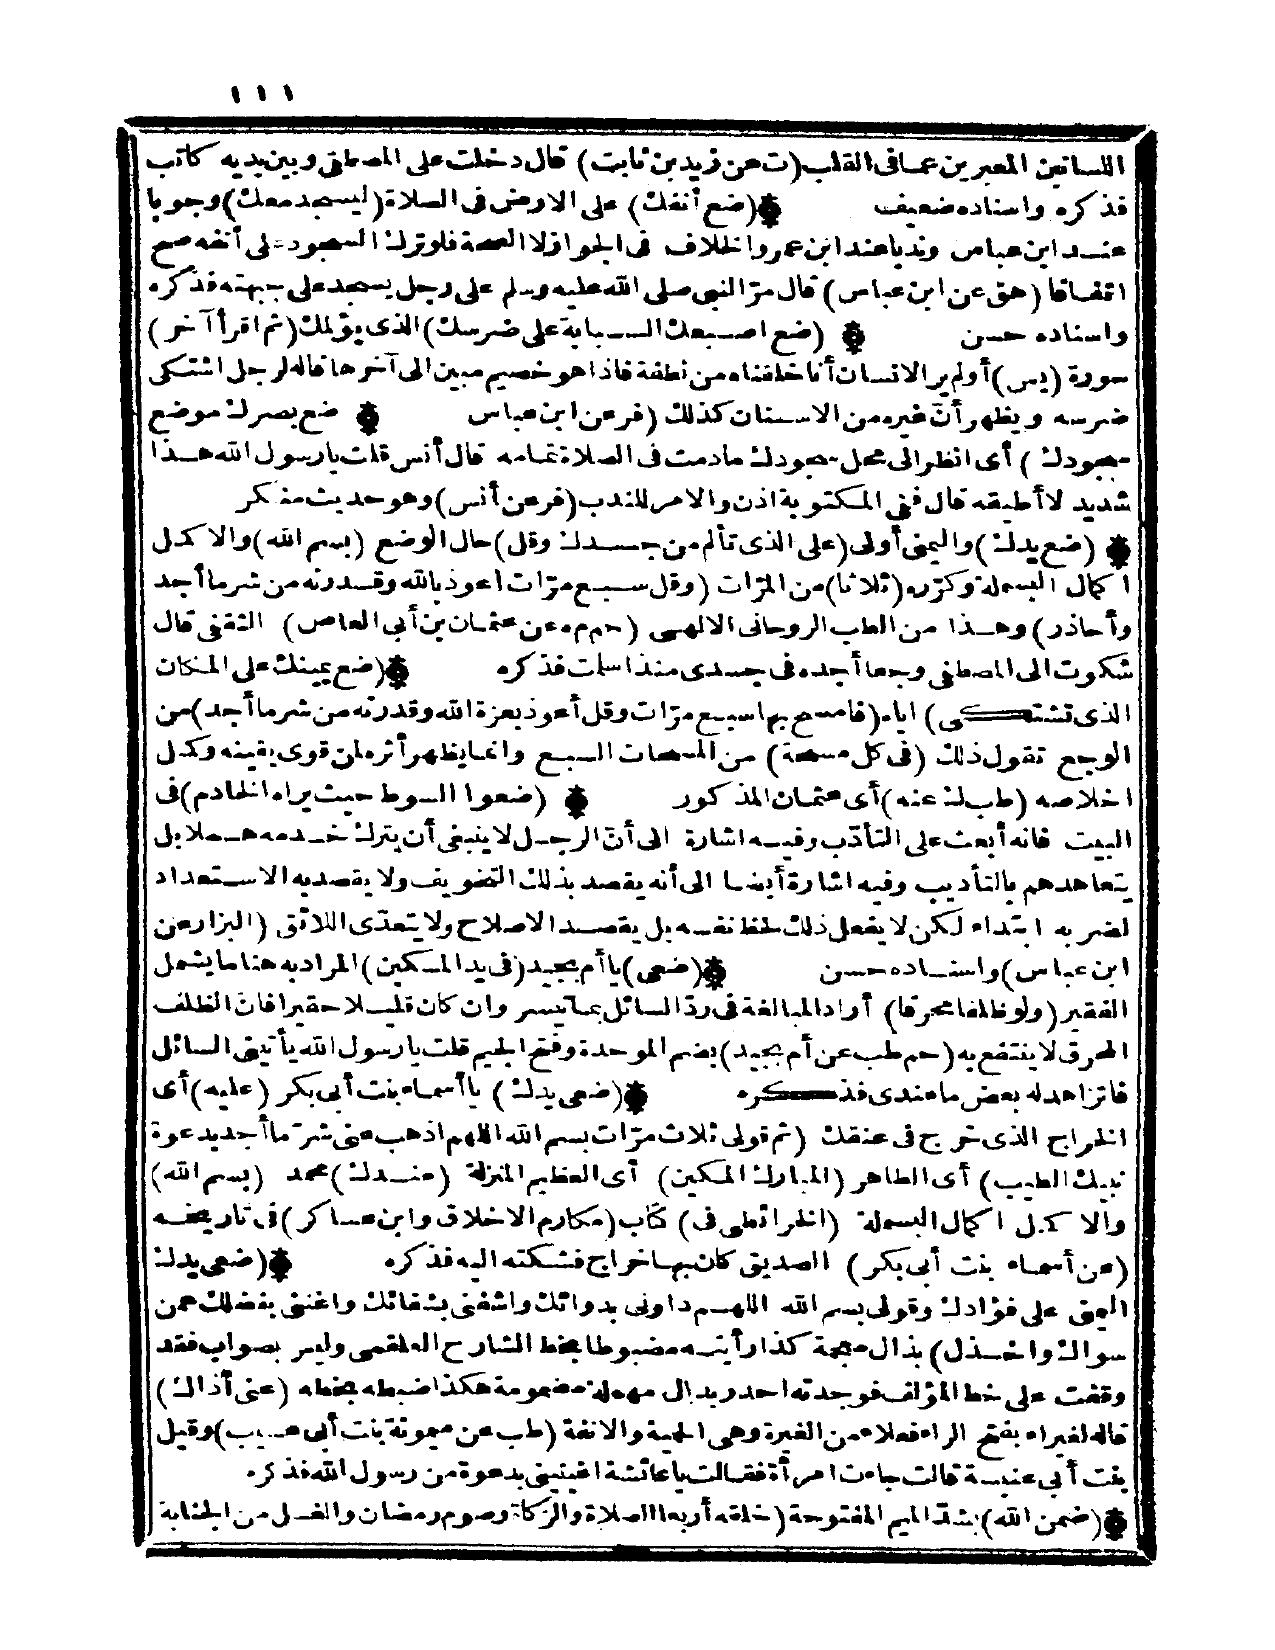 ١١١
اللسانين المعبرين عما فى القلب (ت عن زيد بن ثابت) قال دخلت على المصطفى وبين يديه كاتب
فذكره واسناده ضعيف (ضع أنفك) على الارض فى الصلاة (ليسجد معك) وجوبا
عنـد ابن عباس وندبا عند ابن عمر والخلاف فى الجواز لا الصحة فلو ترك السجود على أنفه صح
اتفاقا (هق عن ابن عباس) قال مرّ النبى صلى الله عليه وسلم على رجل يسجد على جبهته فذكره
واسناده حسن (ضع اصـبعك السـبابة على ضرسك) الذى يؤلمك (ثم اقرأ آخر)
سورة (يس) أولم ير الانسان أنا خلقناه من نطفة فاذا هو خصيم مبين الى آخرها قاله لرجل اشتكى
ضرسه ويظهر أنّ غيره من الاسـنان كذلك (فر عن ابن عباس ضع بصرك موضع
سجودك) أى انظر الى محل سجودك مادمت فى الصلاة بتمامه قال أنس قلت يارسول الله هـذا
شديد لا أطيقه قال ففى المكتوبة اذن والامر للندب (فر عن أنس) وهو حديث منكر
(ضع يدك) واليمنى أولى (على الذى تألم من جسـدك وقل) حال الوضع (بسم الله) والاكمل
اكمال البسملة وكرّره (ثلاثا) من المرّات (وقل سـبع مرّات أعوذ بالله وقـدرته من شر ما أجد
وأحاذر) وهـذا من الطب الروحانى الالهى (حم م ه عن عثمان بن أبى العاص) الثقفى قال
شكوت الى المصطفى وجعا أجده فى جسدى منذ اسلمت فذكره (ضع يمينك على المكان
الذى تشتكى) اياه (فامسح بها سبع مرّات وقل أعوذ بعزة الله وقدرته من شر ما أجد) من
الوجع تقول ذلك (فى كل مسحة) من المسحات السـبع وانما يظهر أثره لمن قوى يقينه وكمل
اخلاصه (طب ك عنه) أى عثمان المذكور (ضعوا السوط حيث يراه الخادم) فى
البيت فانه أبعث على التأدّب وفيه اشارة الى أنّ الرجـل لا ينبغى أن يترك خـدمه هـملا بل
يتعاهدهم بالتأديب وفيه اشارة أيضا الى أنه يقصد بذلك التخويف ولا يقصد به الاسـتعداد
لضربه ابتداء لكن لا يفعل ذلك لحظ نفسه بل يقصـد الاصلاح ولا يتعدّى اللائق (البزار عن
ابن عباس) واسـناده حسن (ضعى) يا أم بجيد (فى يد المسكين) المراد به هنا ما يشمل
الفقير (ولو ظلفا محرقا) أراد المبالغة فى ردّ السائل بما تيسر وان كان قليـلا حقيرا فان الظلف
المحرق لا ينتفع به (حم طب عن أم بجيد) بضم الموحدة وفتح الجيم قلت يارسول الله يأتينى السائل
فاتزاهد له بعض ما عندى فذكره (ضعى يدك) يا أسماء بنت أبى بكر (عليه) أى
الخراج الذى خرج فى عنقك (ثم قولى ثلاث مرّات بسم الله اللهم اذهب عنى شرّ ما أجد بدعوة
نبيك الطيب) أى الطاهر (المبارك المكين) أى العظيم المنزلة (عنـدك) محمد (بسم الله)
والاكمل اكمال البسملة (الخرائطى فى) كتاب (مكارم الاخلاق وابن عساكر) فى تاريخه
(عن أسماء بنت أبى بكر) الصديق كان بها خراج فشكته اليه فذكره (ضعى يدك
اليمنى على فؤادك وقولى بسم الله اللهـم داونى بدوائك واشفنى بشفائك واغننى بفضلك عمن
سواك واحـذل) بذال معجمة كذا رأيتـه مضبوطا بخط الشارح العلقمى وليس بصواب فقد
وقفت على خط المؤلف فوجدته احدر بدال مهملة مضمومة هكذا ضبطه بخطه (عنى أذاك)
قاله لغيراء بفتح الراء فعلاء من الغيرة وهى الحمية والانفة (طب عن ميمونة بنت أبى عسيب) وقيل
بنت أبى عنبسة قالت جاءت امرأة فقالت ياعائشة اغيثينى بدعوة من رسول الله فذكره
(ضمن الله) بشدّ الميم المفتوحة (خلقه أربعا الصلاة والزكاة وصوم رمضان والغسل من الجنابة